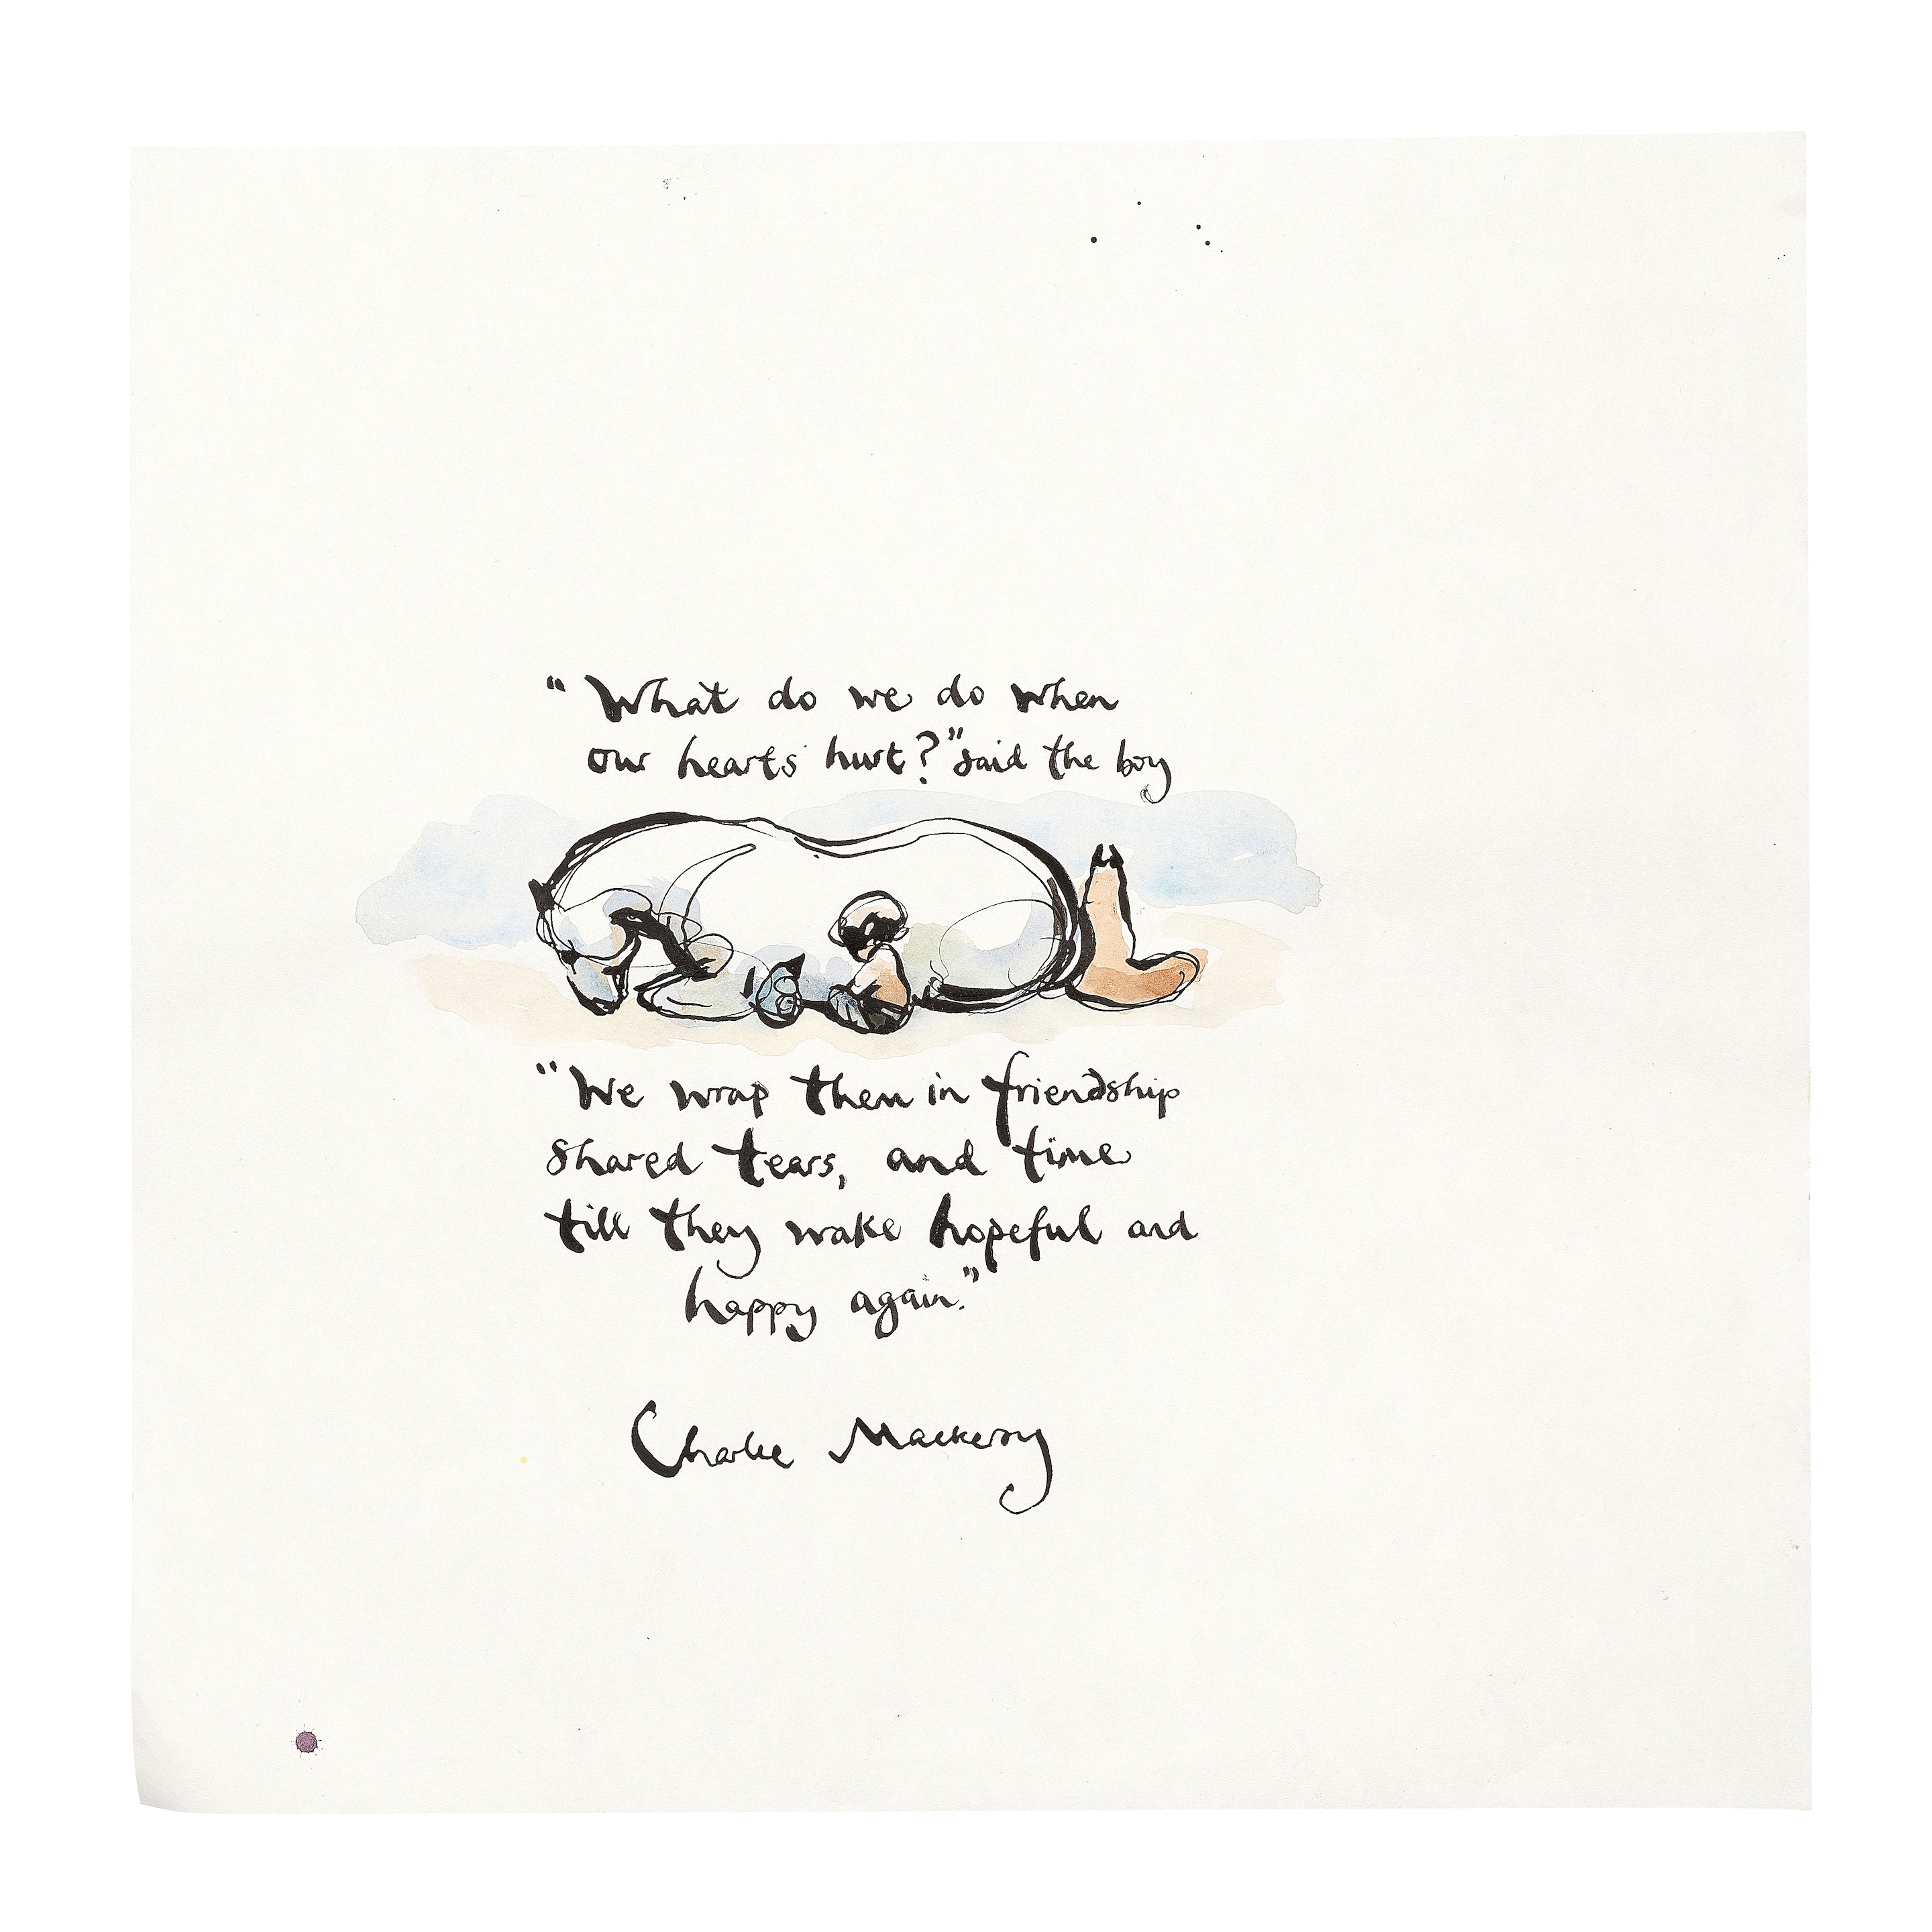 "What do we do when
our hearts hurt?" said the boy
"We wrap them in friendship
shared tears, and time
till they wake hopeful and
happy again."
Charlie Mackesy